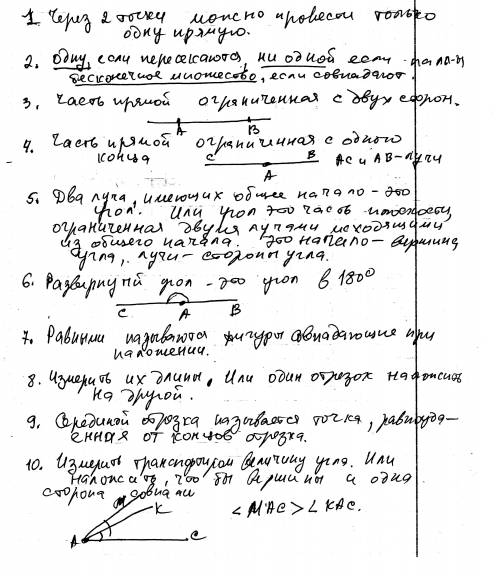 1. Через 2 точки можно провести только
одну прямую.
2. одну, если пересекаются, ни одной если
бесконечное множество, если совпадают.
3. Часть прямой ограниченная с двух сторон.
A B
4. Часть прямой ограниченная с одного
конца C B AC и AB - лучи
A
5. Два луча, имеющих общее начало - это
угол. Или угол это часть плоскости,
ограниченная двумя лучами исходящими
из общего начала. Это начало - вершина
угла, лучи - стороны угла.
6. Развернутый угол - это угол в 180°
C A B
7. Равными называются фигуры совпадающие при
наложении.
8. Измерить их длины. Или один отрезок наложить
на другой.
9. Серединой отрезка называется точка, равноуда-
енная от концов отрезка.
10. Измерить транспортиром величину угла. Или
наложить, что бы вершины и одна
сторона совпали
M K
A C
∠MAC > ∠KAC.